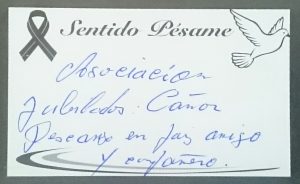 Sentido Pésame
Asociacion
Jubilados: Cañar
Descanse en paz amigo
y compañero.